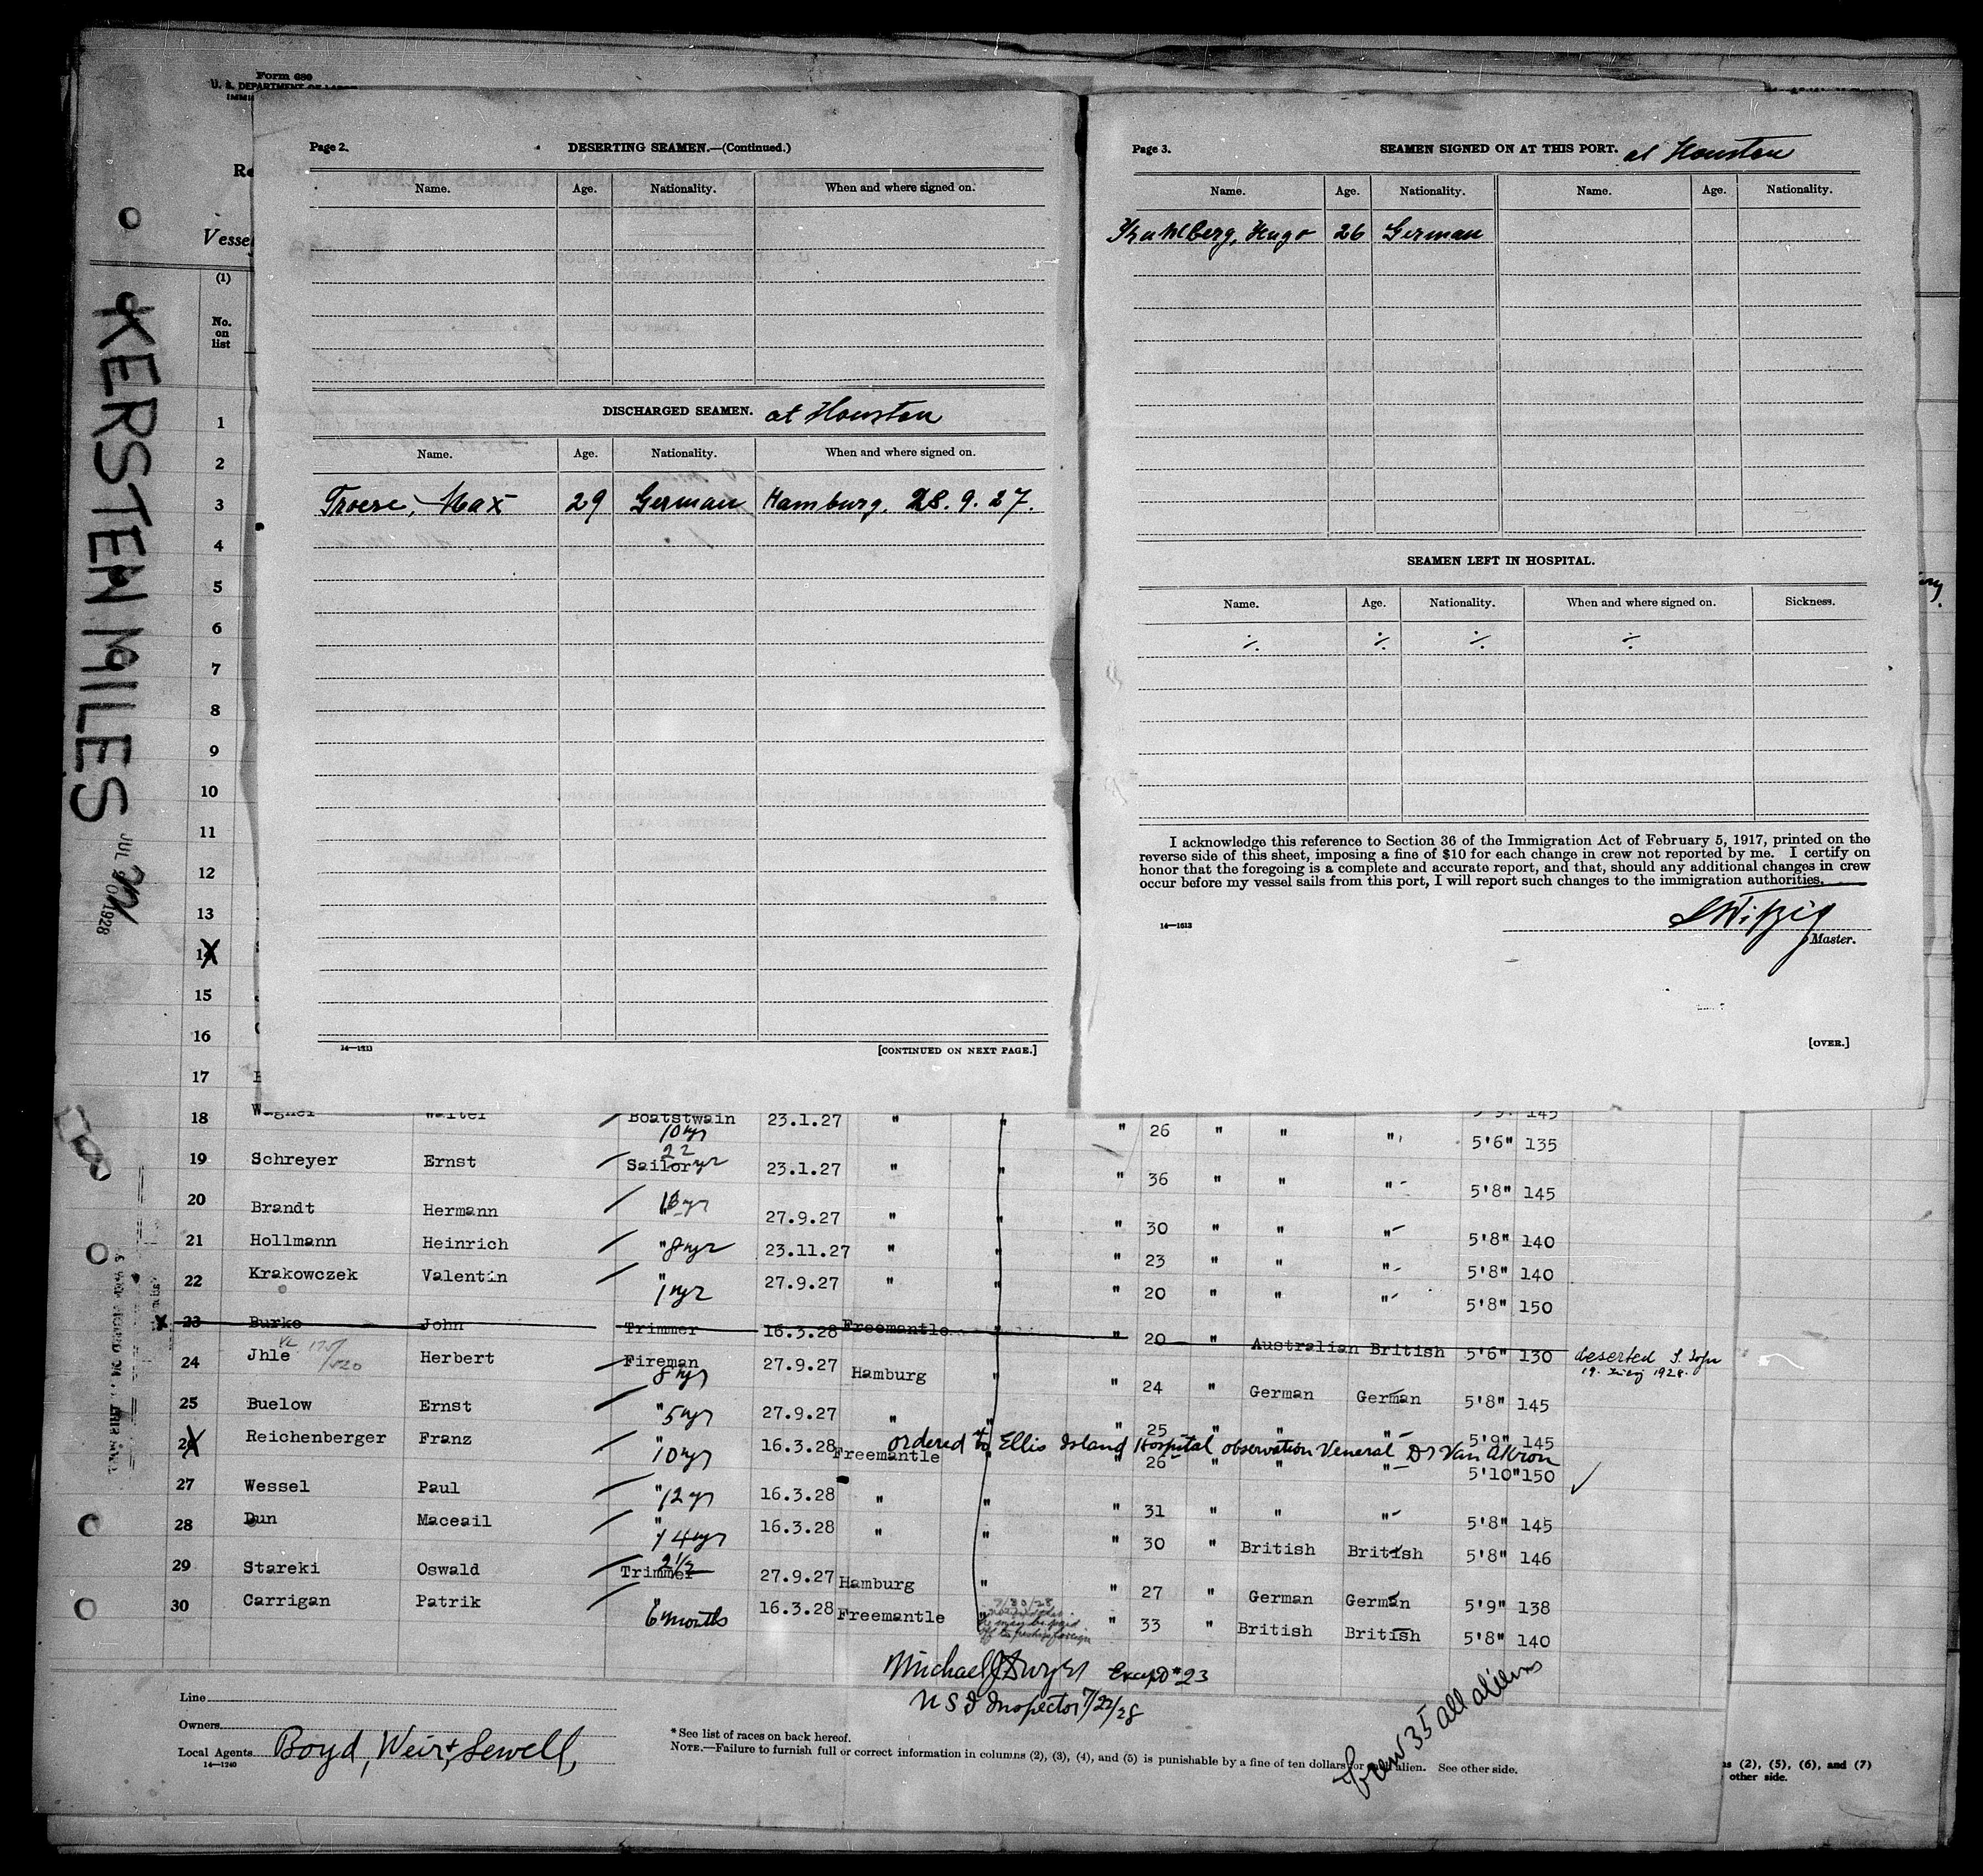 Form 680
U. S. DEPARTMENT OF LABOR
Vessel
(1)
No.
on
list
KERSTEN MILES
JUL 1928
Page 2.
DESERTING SEAMEN.—(Continued.)
Name. Age. Nationality. When and where signed on.
DISCHARGED SEAMEN. at Houston
Name. Age. Nationality. When and where signed on.
Max 29 German Hamburg. 28.9.27.
14—1213
[CONTINUED ON NEXT PAGE.]
Page 3.
SEAMEN SIGNED ON AT THIS PORT. at Houston
Name. Age. Nationality. Name. Age. Nationality.
Hugo 26 German
SEAMEN LEFT IN HOSPITAL.
Name. Age. Nationality. When and where signed on. Sickness.
⁒ ⁒ ⁒ ⁒
I acknowledge this reference to Section 36 of the Immigration Act of February 5, 1917, printed on the
reverse side of this sheet, imposing a fine of $10 for each change in crew not reported by me. I certify on
honor that the foregoing is a complete and accurate report, and that, should any additional changes in crew
occur before my vessel sails from this port, I will report such changes to the immigration authorities.
14—1613
Master.
[OVER.]
1
2
3
4
5
6
7
8
9
10
11
12
13
14
15
16
17
18 Wagner Walter Boatstwain 10 yr 23.1.27 " " " 26 " " " 5'6" 135
19 Schreyer Ernst Sailor 22 yr 23.1.27 " " " 36 " " " 5'8" 145
20 Brandt Hermann 27.9.27 " " " 30 " " " 5'8" 140
21 Hollmann Heinrich " 8 yr 23.11.27 " " " 23 " " " 5'8" 140
22 Krakowczek Valentin " 1 yr 27.9.27 " " " 20 " " " 5'8" 150
23 Burke John Trimmer 16.3.28 Freemantle " " 20 " Australian British 5'6" 130 deserted
19. 1928.
24 Jhle Herbert Fireman 8 yr 27.9.27 Hamburg " " 24 " German German 5'8" 145
25 Buelow Ernst " 5 yr 27.9.27 " " " 25 " " " 5'9" 145
ordered to Ellis Island Hospital observation Veneral Dr Van
26 Reichenberger Franz " 10 yr 16.3.28 Freemantle " " 26 " " " 5'10" 150
27 Wessel Paul " 12 yr 16.3.28 " " " 31 " " " 5'8" 145
28 Dun Maceail " 4 yr 16.3.28 " " " 30 " British British 5'8" 146
29 Stareki Oswald Trimmer 2 1/2 27.9.27 Hamburg " " 27 " German German 5'9" 138
30 Carrigan Patrik " 6 months 16.3.28 Freemantle " " 33 " British British 5'8" 140
7/30/28
Michael J Dwyer Except #23
U S I Inspector 7/21/28
Crew 35 all aliens
Line
Owners
Local Agents Boyd, Weir & Sewell,
14—1240
*See list of races on back hereof.
NOTE.—Failure to furnish full or correct information in columns (2), (3), (4), and (5) is punishable by a fine of ten dollars for each alien. See other side.
(2), (5), (6), and (7)
other side.